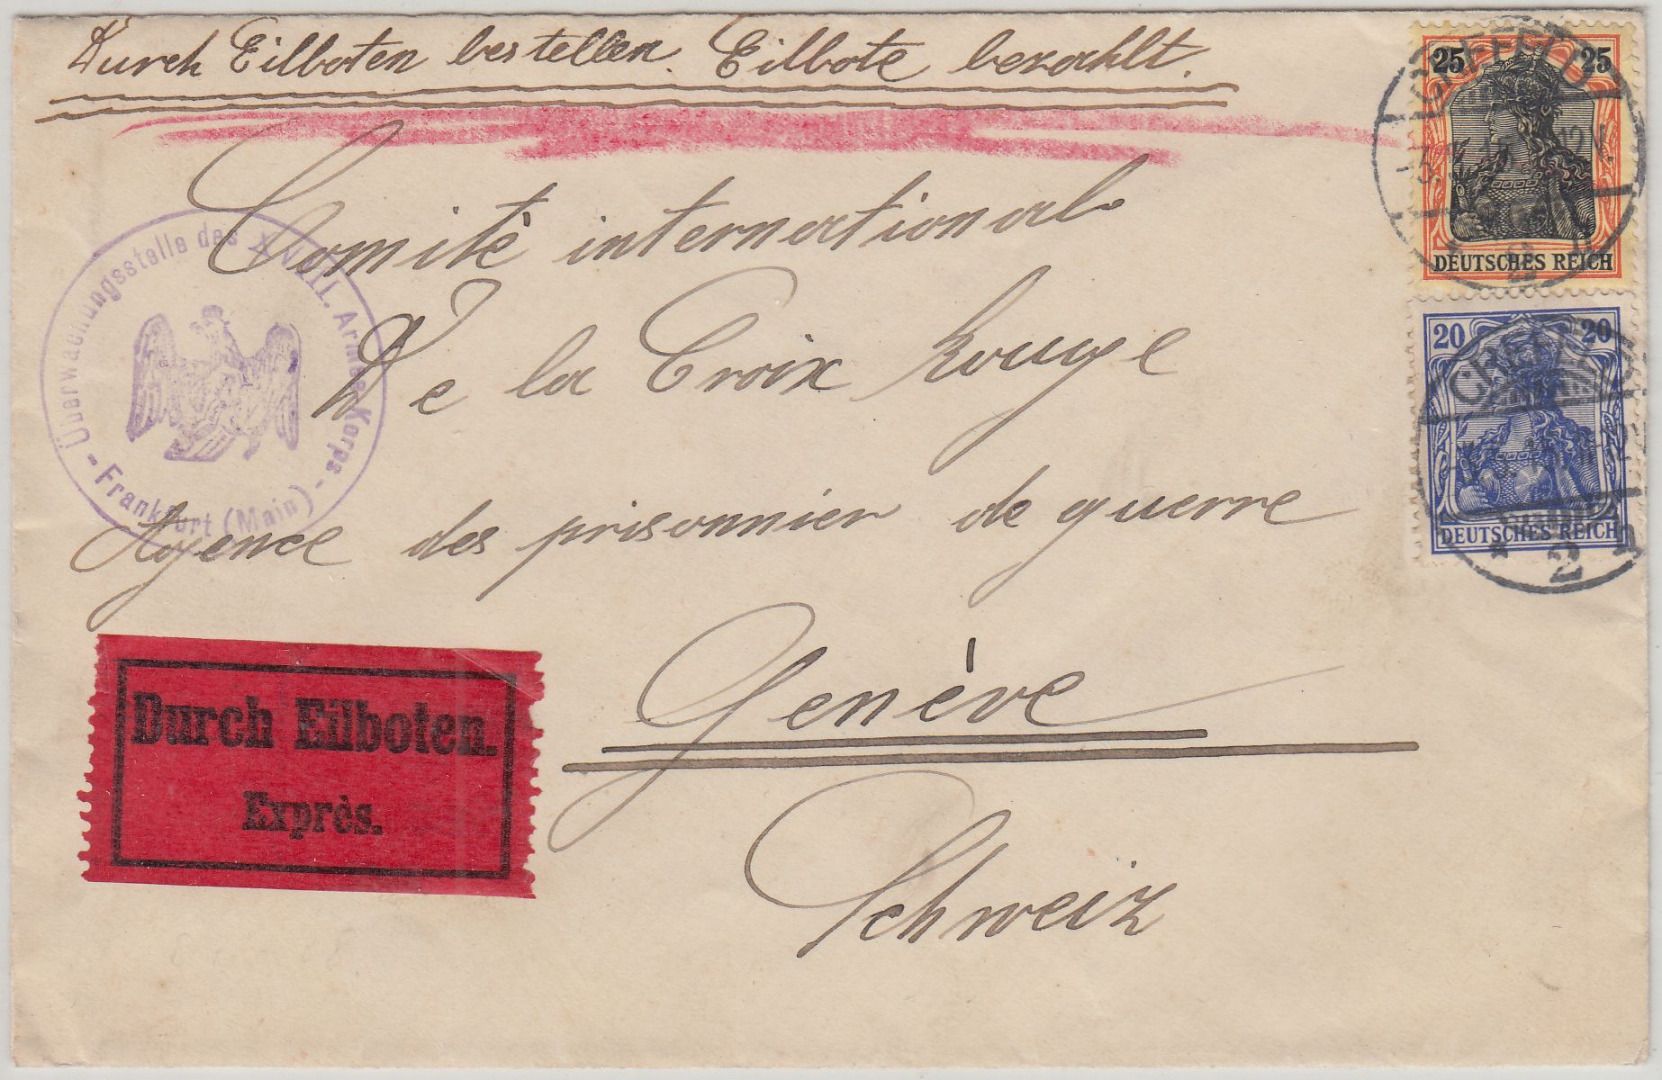 Durch Eilboten bestellen. Eilbote bezahlt.
25 25
DEUTSCHES REICH
CREFELD
2
20 20
DEUTSCHES REICH
CREFELD
* 2 n
Überwachungsstelle des XVIII. Armee Korps
- Frankfurt (Main) -
Comité international
De la Croix Rouge
Agence des prisonnier de guerre
Genève
Schweiz
Durch Eilboten.
Exprès.